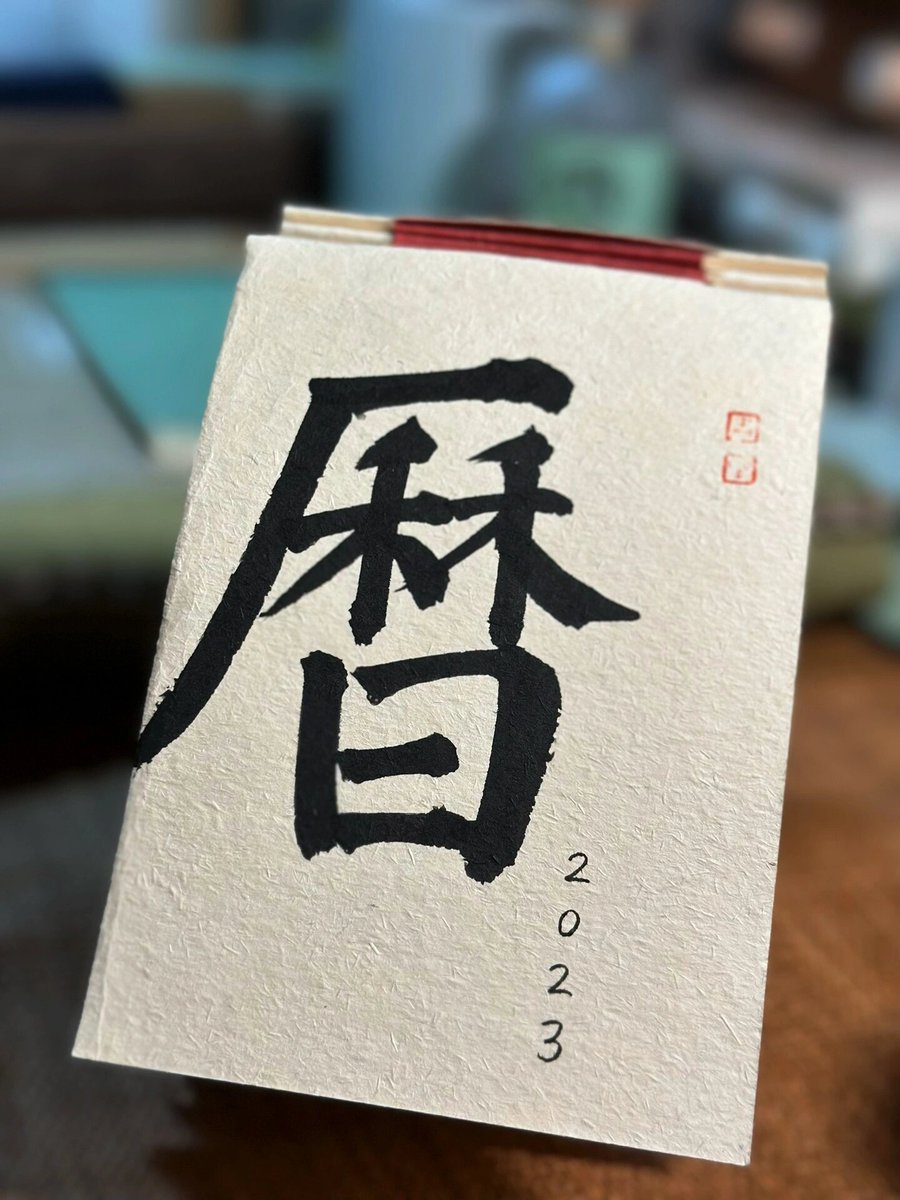 曆
2023